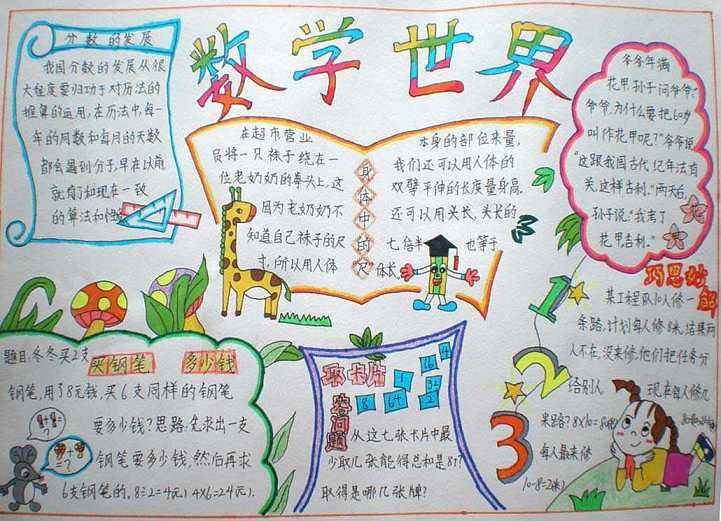 数学世界
分数的发展
我国分数的发展从很
大程度要归功于对历法的
推算的运用,在历法中,每一
年的周数和每月的天数
都会遇到分子,早在以前
就有了和现在一致
的算法和
在超市营业
员将一只袜子绕在一
位老奶奶的拳头上,这
因为老奶奶不
知道自己袜子的尺
寸,所以用人体
身体中的尺
本身的部位来量,
我们还可以用人体的
双臂平伸的长度量身高.
还可以用头长,头长的
七倍半 也等于
体长
爷爷年满
花甲,孙子问爷爷:
爷爷,为什么要把60岁
叫作花甲呢?"爷爷说
"这跟我国古代纪年法有
关,这样吉利."两天后,
孙子说:"我走了
花甲吉利."
巧思妙解
某工程队10人修一
条路,计划每人修8米,结果两
人不在,没来修,他们把任务分
给别人 现在每人修几
米路? 8×10=80(米)
每人最来修
10-8=2(米)
1
2
3
题目:冬冬买2支
买钢笔 多少钱
钢笔,用了8元钱,买6支同样的钢笔
要多少钱?思路:先求出一支
钢笔要多少钱,然后再求
6支钢笔的. 8÷2=4(元) 4×6=24(元).
8+8=?
+ =?
取卡片
答问题
8 64 1 2 32 16 4
从这七张卡片中最
少取几张能得总和是87?
取得是哪几张牌?